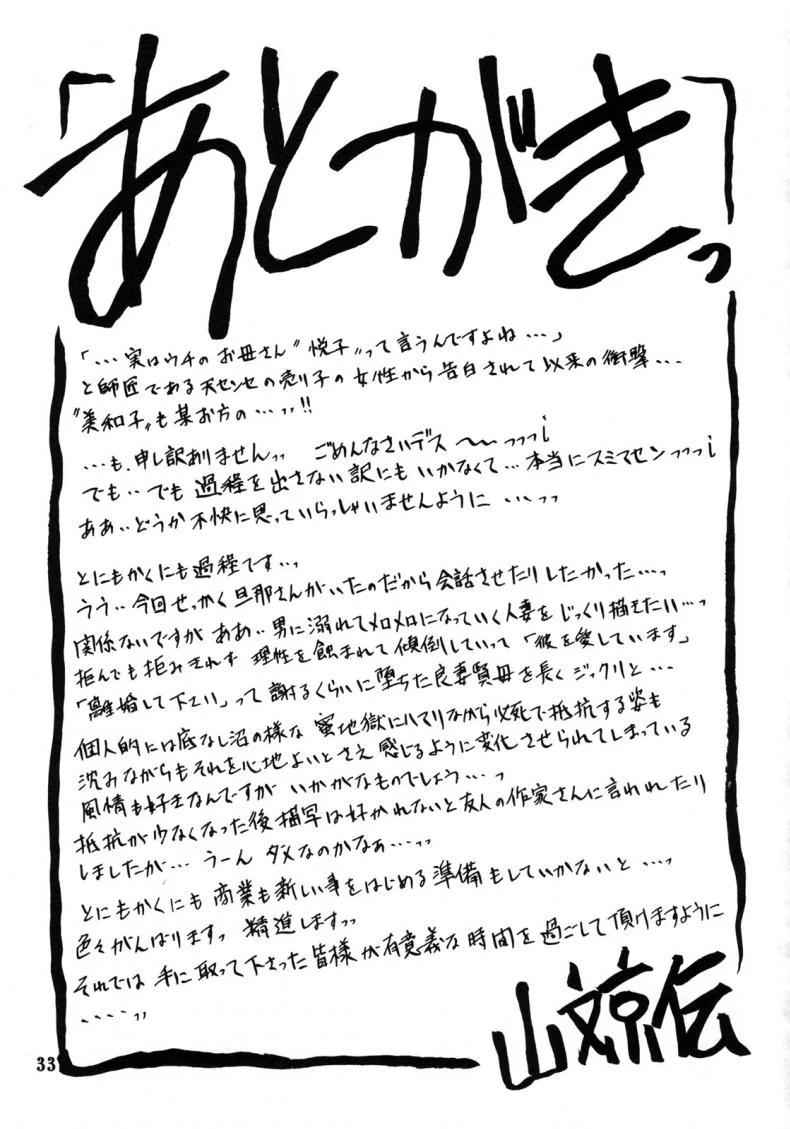 「あとがきっ」
「...実はウチのお母さん〝悦子〟って言うんですよね...」
と師匠である天センセの売り子の女性から告白されて以来の衝撃...
〝美和子〟も某お方の...ッッ!!
...も、申し訳ありませんッッ ごめんなさいデス〜〜ッッッi
でも..でも過程を出さない訳にもいかなくて...本当にスミマセンッッッi
ああ..どうか不快に思っていらっしゃいませんように...ッッ
とにもかくにも過程です...っ
うう..今回せっかく旦那さんがいたのだから会話させたりしたかった...っ
関係ないですが ああ..男に溺れてメロメロになっていく人妻をじっくり描きたい...っ
拒んでも拒みきれず 理性を蝕まれて傾倒していって「彼を愛しています」
「離婚して下さい」って謝るくらいに堕ちた良妻賢母を長くジックリと...
個人的には底なし沼の様な蜜地獄にハマりながら必死で抵抗する姿も
沈みながらもそれを心地よいとさえ感じるように変化させられてしまっている
風情も好きなんですが いかがなものでしょう...っ
抵抗が少なくなった後描写は好かれないと友人の作家さんに言われたり
しましたが... うーん ダメなのかなぁ...ッッ
とにもかくにも 商業も新しい事をはじめる準備もしていかないと...っ
色々がんばりますっ 精進しますッッ
それでは 手に取って下さった皆様が有意義な時間を過ごして頂けますように
....ッッ
山文京伝
33